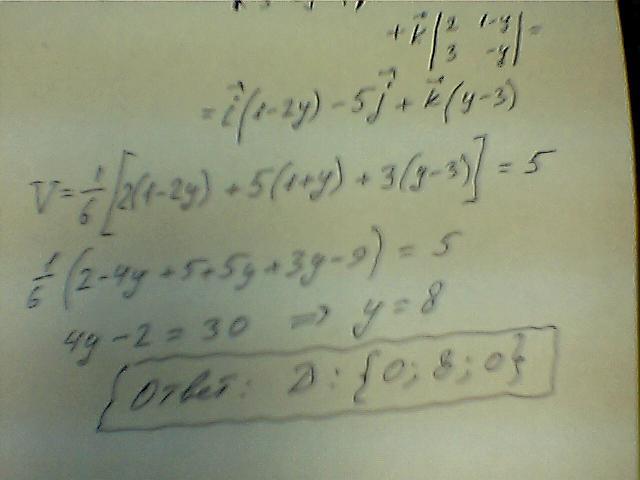 + k⃗ |2 1-y|
|3 -y| =
= i⃗(1-2y) - 5j⃗ + k⃗(y-3)
V = 1/6 [2(1-2y) + 5(1+y) + 3(y-3)] = 5
1/6 (2-4y+5+5y+3y-9) = 5
4y-2 = 30 => y = 8
Ответ: D: {0; 8; 0}